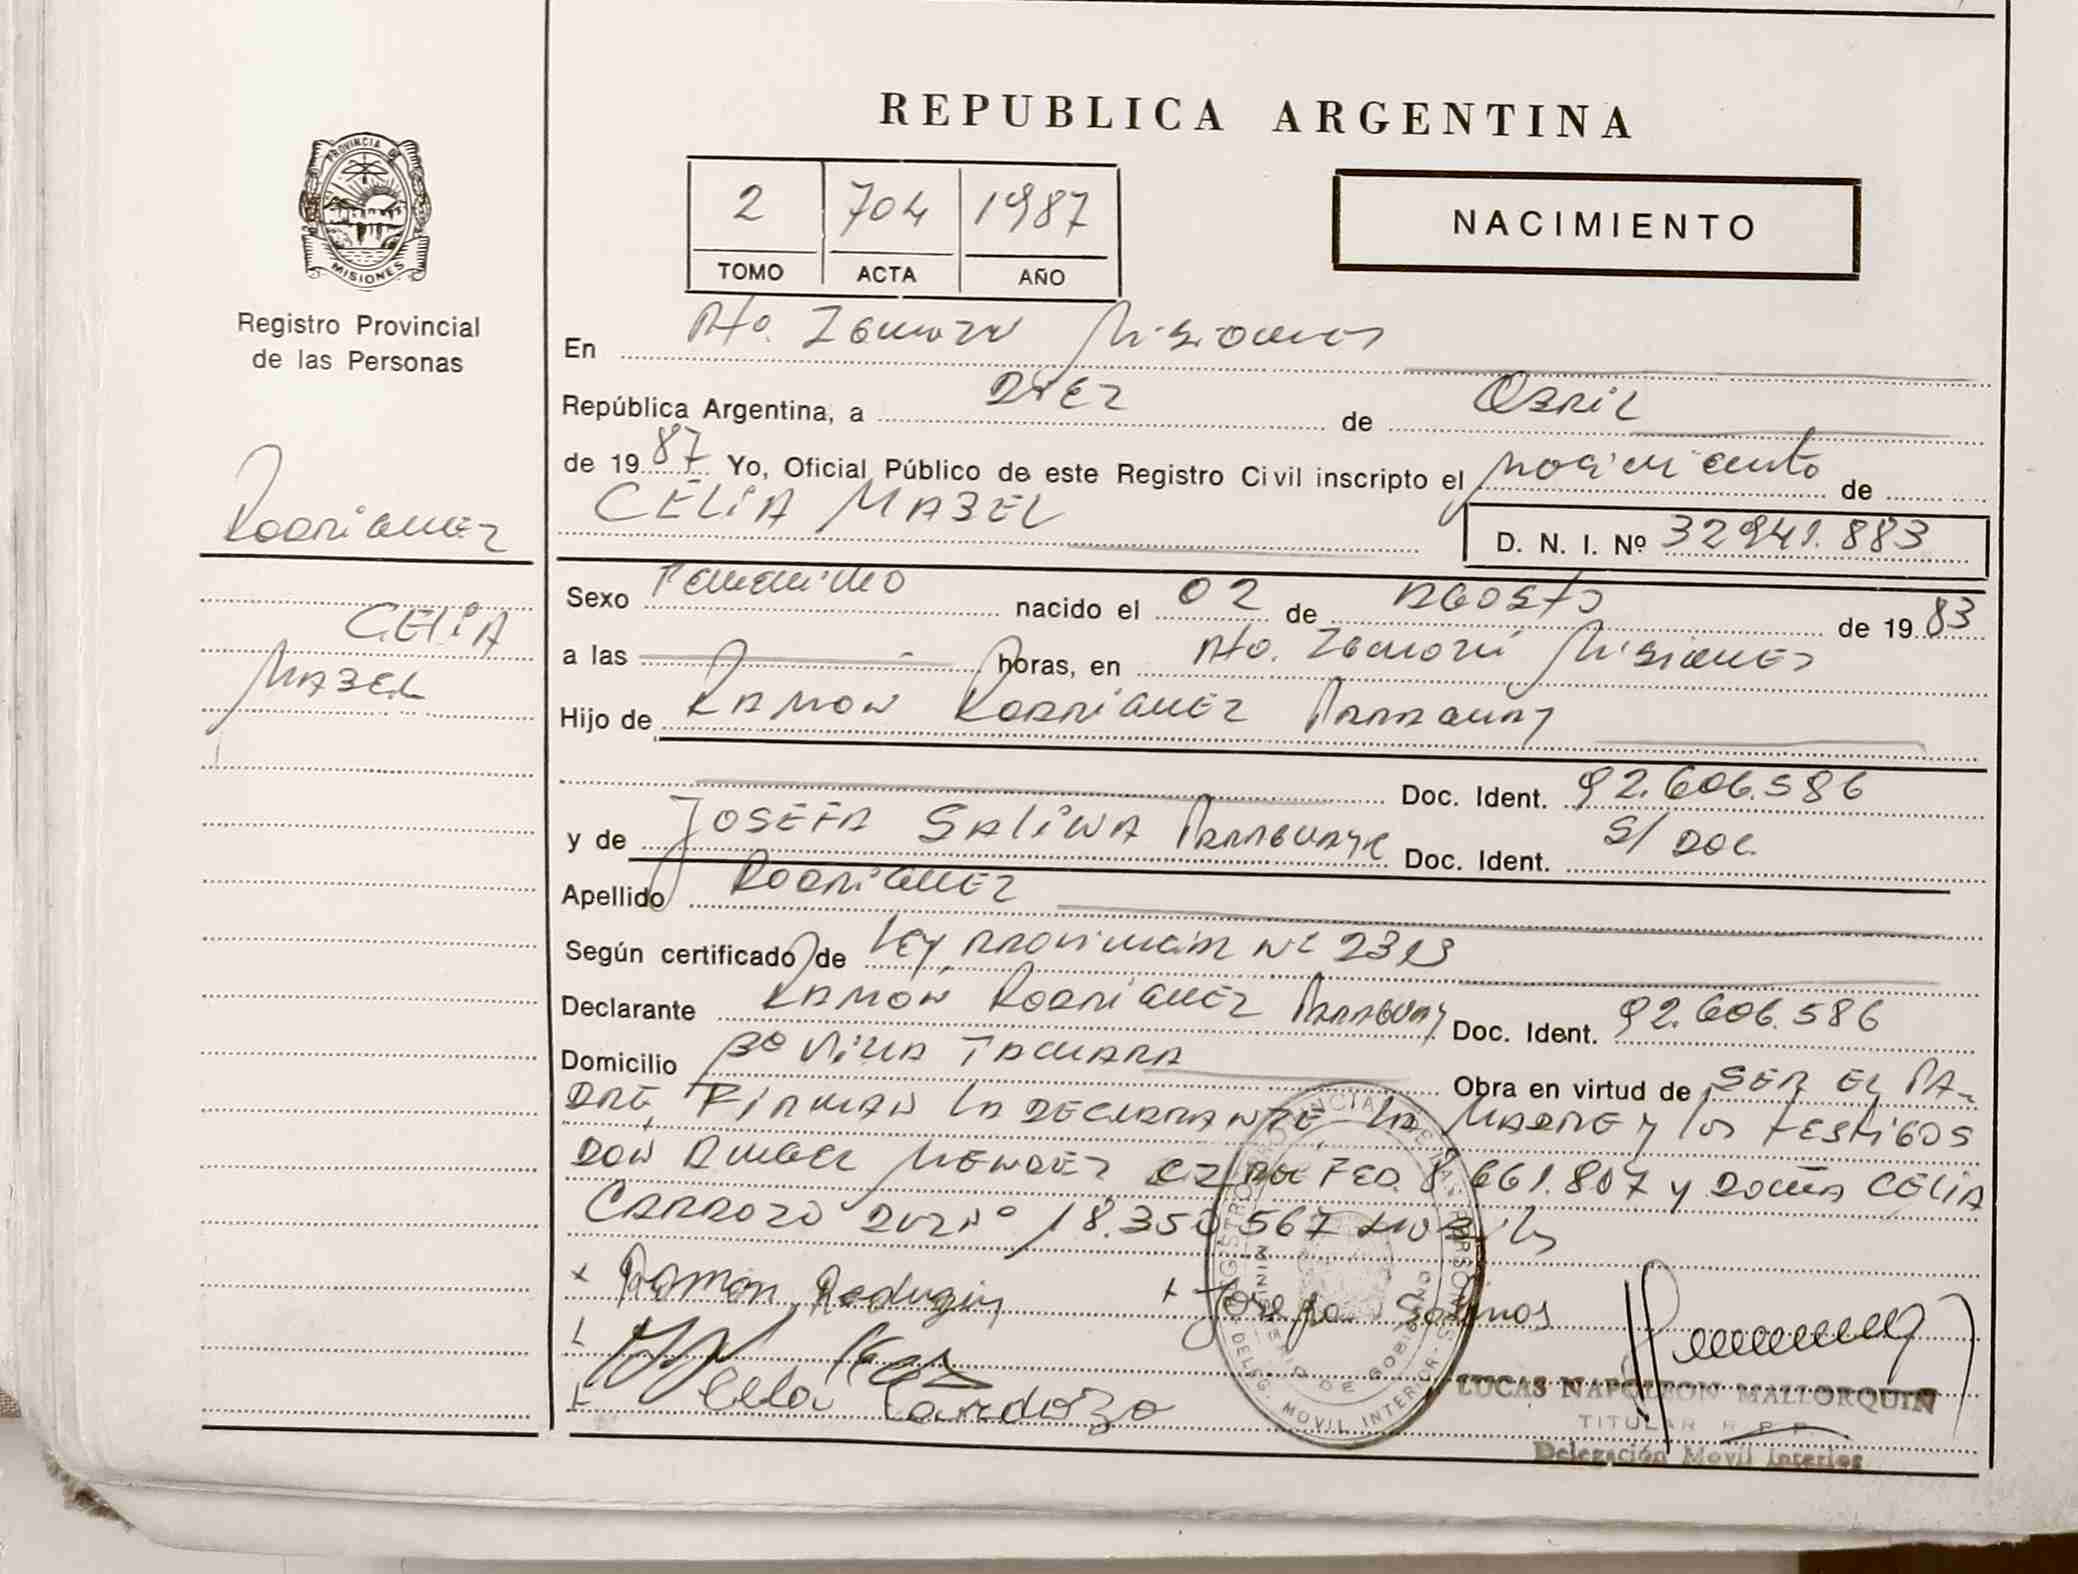 REPUBLICA ARGENTINA
PROVINCIA DE
MISIONES
Registro Provincial
de las Personas
2 704 1987
TOMO ACTA AÑO
NACIMIENTO
En Pto. Misiones
República Argentina, a DIEZ de ABRIL
de 1987 Yo, Oficial Público de este Registro Civil inscripto el nacimiento de
CELIA MABEL
D. N. I. Nº 32941.883
RODRIGUEZ
CELIA
MABEL
Sexo Femenino nacido el 02 de AGOSTO de 1983
a las horas, en Pto. Misiones
Hijo de RAMON RODRIGUEZ PARAGUAY
Doc. Ident. 92.606.586
y de JOSEFA SALINA Doc. Ident. S/ DOC.
Apellido RODRIGUEZ
Según certificado de LEY PROVINCIAL Nº
Declarante RAMON RODRIGUEZ PARAGUAY Doc. Ident. 92.606.586
Domicilio Bº VILLA Obra en virtud de SER EL PA-
DRE, FIRMAN LA DECLARANTE, LA MADRE y los testigos
DON ANGEL MENDEZ FED. 8 661.807 y DOÑA CELIA
CARDOZO 18.350 567
x Ramon x Josefa Salinas
Celia Cardozo
LUCAS NAPOLEON MALLORQUIN
TITULAR R. P. P.
Delegación Movil Interior
MINISTERIO DE GOBIERNO
DELEG. MOVIL INTERIOR